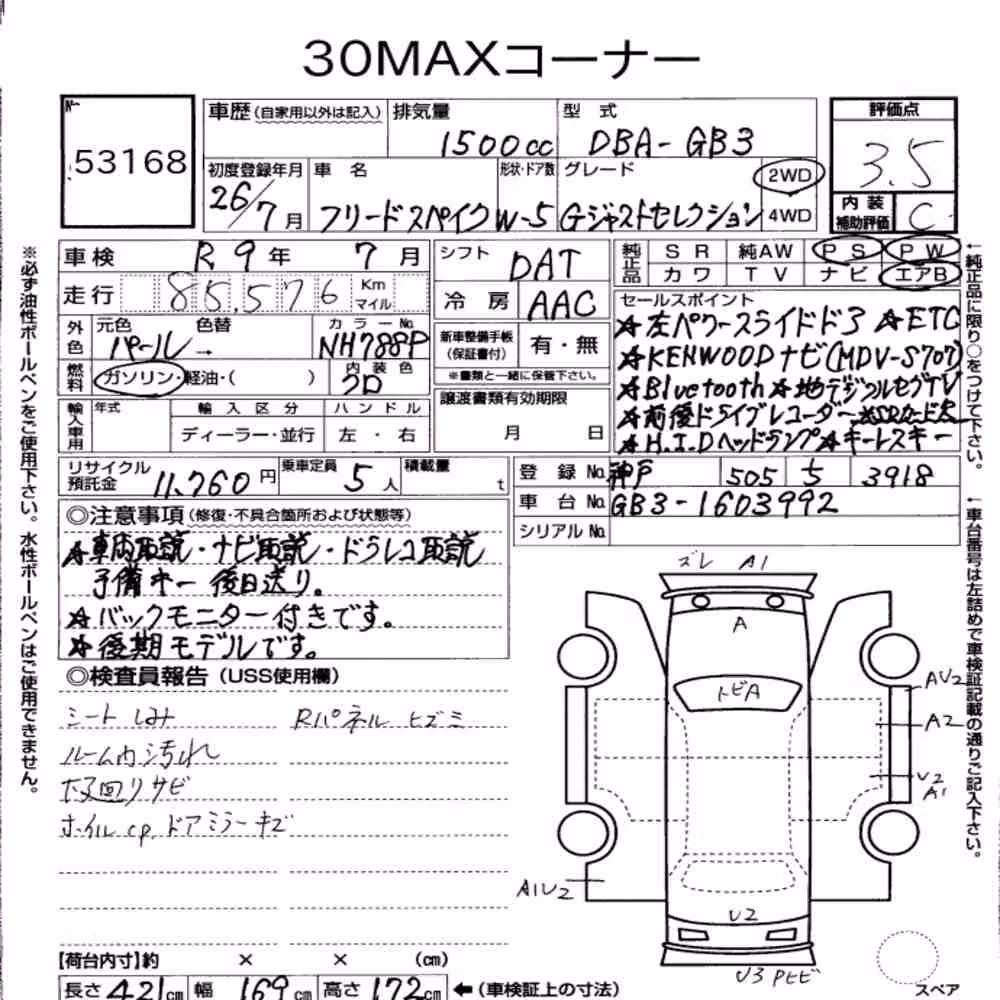 30MAXコーナー
No.
53168
車歴(自家用以外は記入) 排気量 型 式
1500cc DBA-GB3
評価点
3.5
内装補助評価 C
初度登録年月 車 名 形状・ドア数 グレード 2WD
26/7月 フリードスパイク W-5 Gジャストセレクション 4WD
車検 R9年 7月
走行 85,576 Km マイル
シフト DAT
冷房 AAC
純正品 SR 純AW PS PW
カワ TV ナビ エアB
外色 元色 色替 カラーNo.
パール → NH788P
燃料 ガソリン・軽油・( ) 内装色 クロ
新車整備手帳(保証書付) 有・無
※書類と一緒に保管下さい。
セールスポイント
☆左パワースライドドア ☆ETC
☆KENWOODナビ(MDV-S707)
☆Bluetooth☆地デジフルセグTV
☆前後ドライブレコーダー ※SDカード欠
☆H.I.Dヘッドランプ☆キーレスキー
輸入車用 年式 輸入区分 ハンドル
ディーラー・並行 左・右
譲渡書類有効期限
月 日
リサイクル預託金 11,760円 乗車定員 5人 積載量 t
登録No. 神戸 505 ち 3918
車台No. GB3-1603992
シリアルNo.
◎注意事項(修復・不具合箇所および状態等)
☆車両取説・ナビ取説・ドラレコ取説
予備キー後日送り。
☆バックモニター付きです。
☆後期モデルです。
◎検査員報告(USS使用欄)
シートしみ Rパネルヒズミ
ルーム内汚れ
下廻りサビ
ホイルcp. ドアミラーキズ
ズレ A1
A
トビA
AU2
A2
U2
A1
A1U2
U2
U3 Pヒビ
スペア
【荷台内寸】約 × × (cm)
長さ 421cm 幅 169cm 高さ 172cm ←(車検証上の寸法)
※必ず油性ボールペンをご使用下さい。水性ボールペンはご使用できません。
←純正品に限り○をつけて下さい。
←車台番号は左詰めで車検証記載の通りご記入下さい。